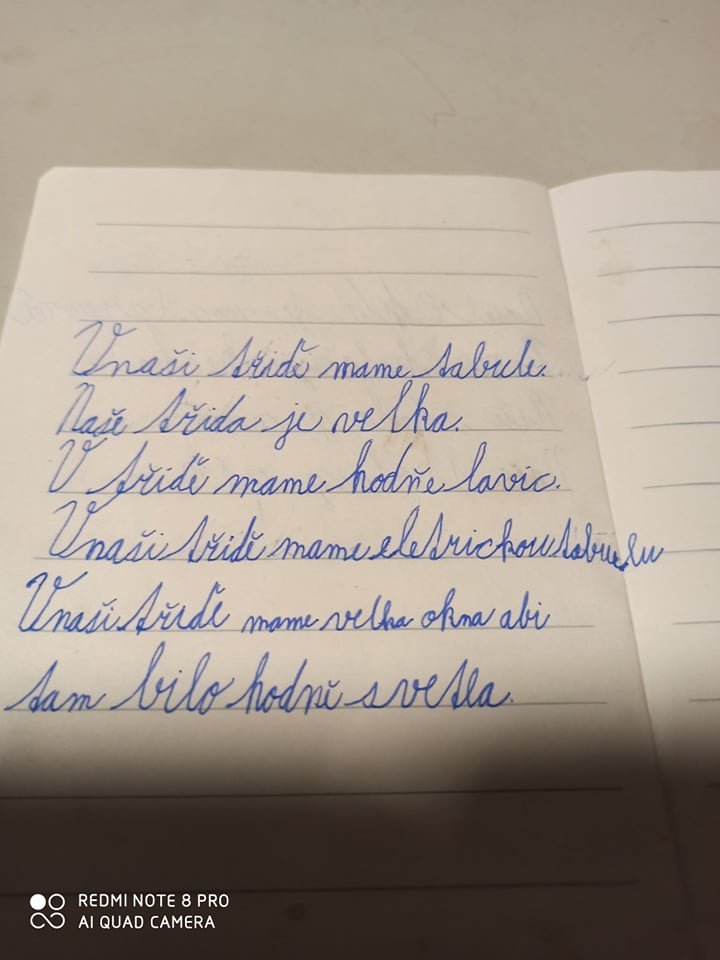 Vnaši třidě mame tabule.
Naše třida je velka.
V třidě mame hodňe lavic.
Vnaši třidě mame eletrickou tabuelu
Vnaši třidě mame velka okna abi
tam bilo hodně svetla.
REDMI NOTE 8 PRO
AI QUAD CAMERA